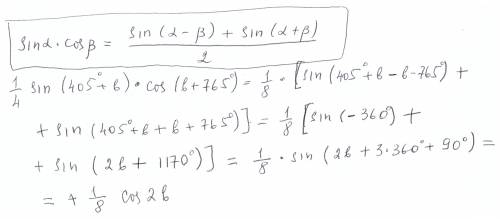 sinα·cosβ = (sin(α-β) + sin(α+β))/2
1/4 sin(405°+b)·cos(b+765°) = 1/8·[sin(405°+b-b-765°) +
+ sin(405°+b+b+765°)] = 1/8[sin(-360°) +
+ sin(2b+1170°)] = 1/8·sin(2b+3·360°+90°) =
= + 1/8 cos2b